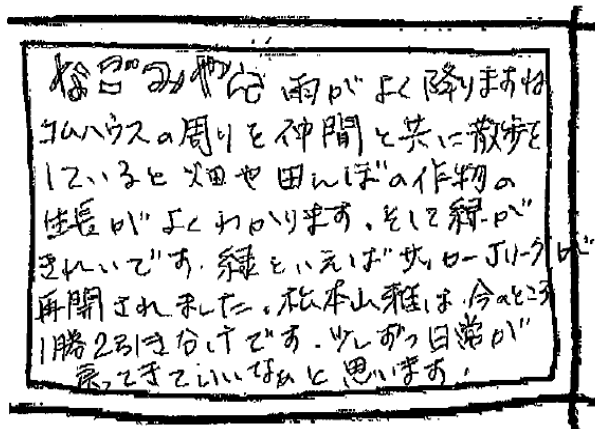 なごみやさん 雨がよく降りますね
コムハウスの周りを仲間と共に散歩を
していると畑や田んぼの作物の
生長がよくわかります。そして緑が
きれいです。緑といえばサッカーJリーグが
再開されました。松本山雅は、今のところ
1勝2引き分けです。少しずつ日常が
戻ってきていいなぁと思います。